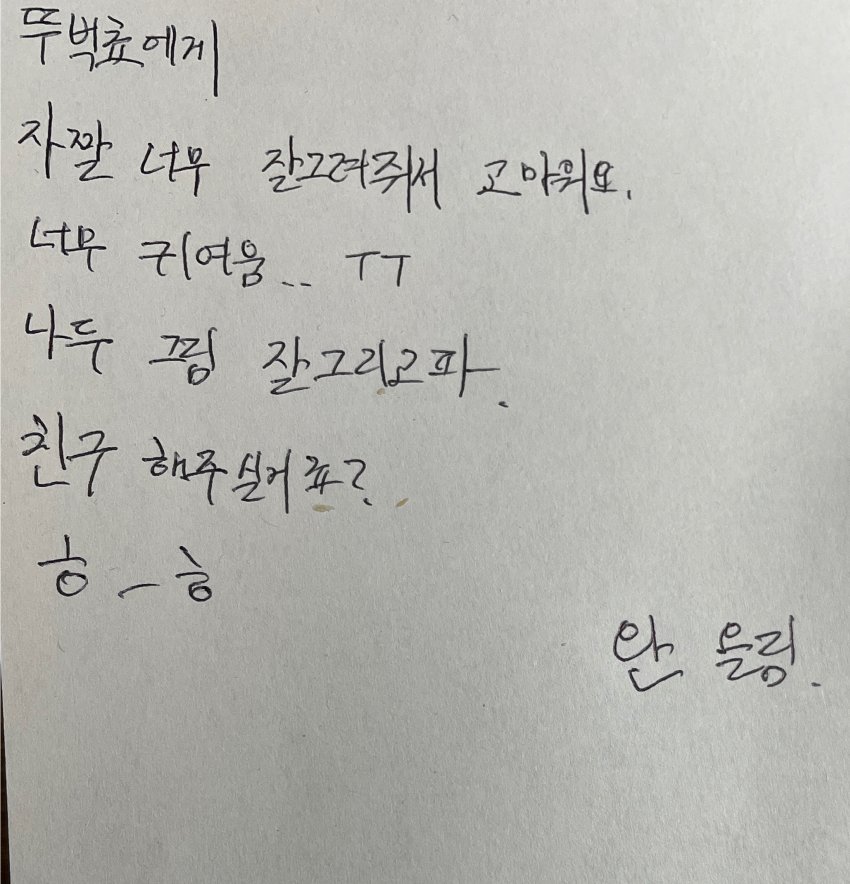 뚜벅쵸에게
자짤 너무 잘그려줘서 고마워요.
너무 귀여움.. ㅜㅜ
나두 끄림 잘그리고파.
친구 해주실어죠?
ㅎ_ㅎ
완 올림.